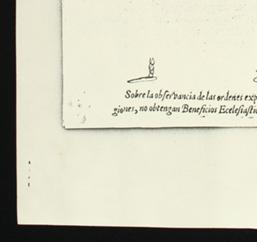 Sobre la obſervancia de las ordenes exp
giones, no obtengan Beneficios Eceleſiaſti